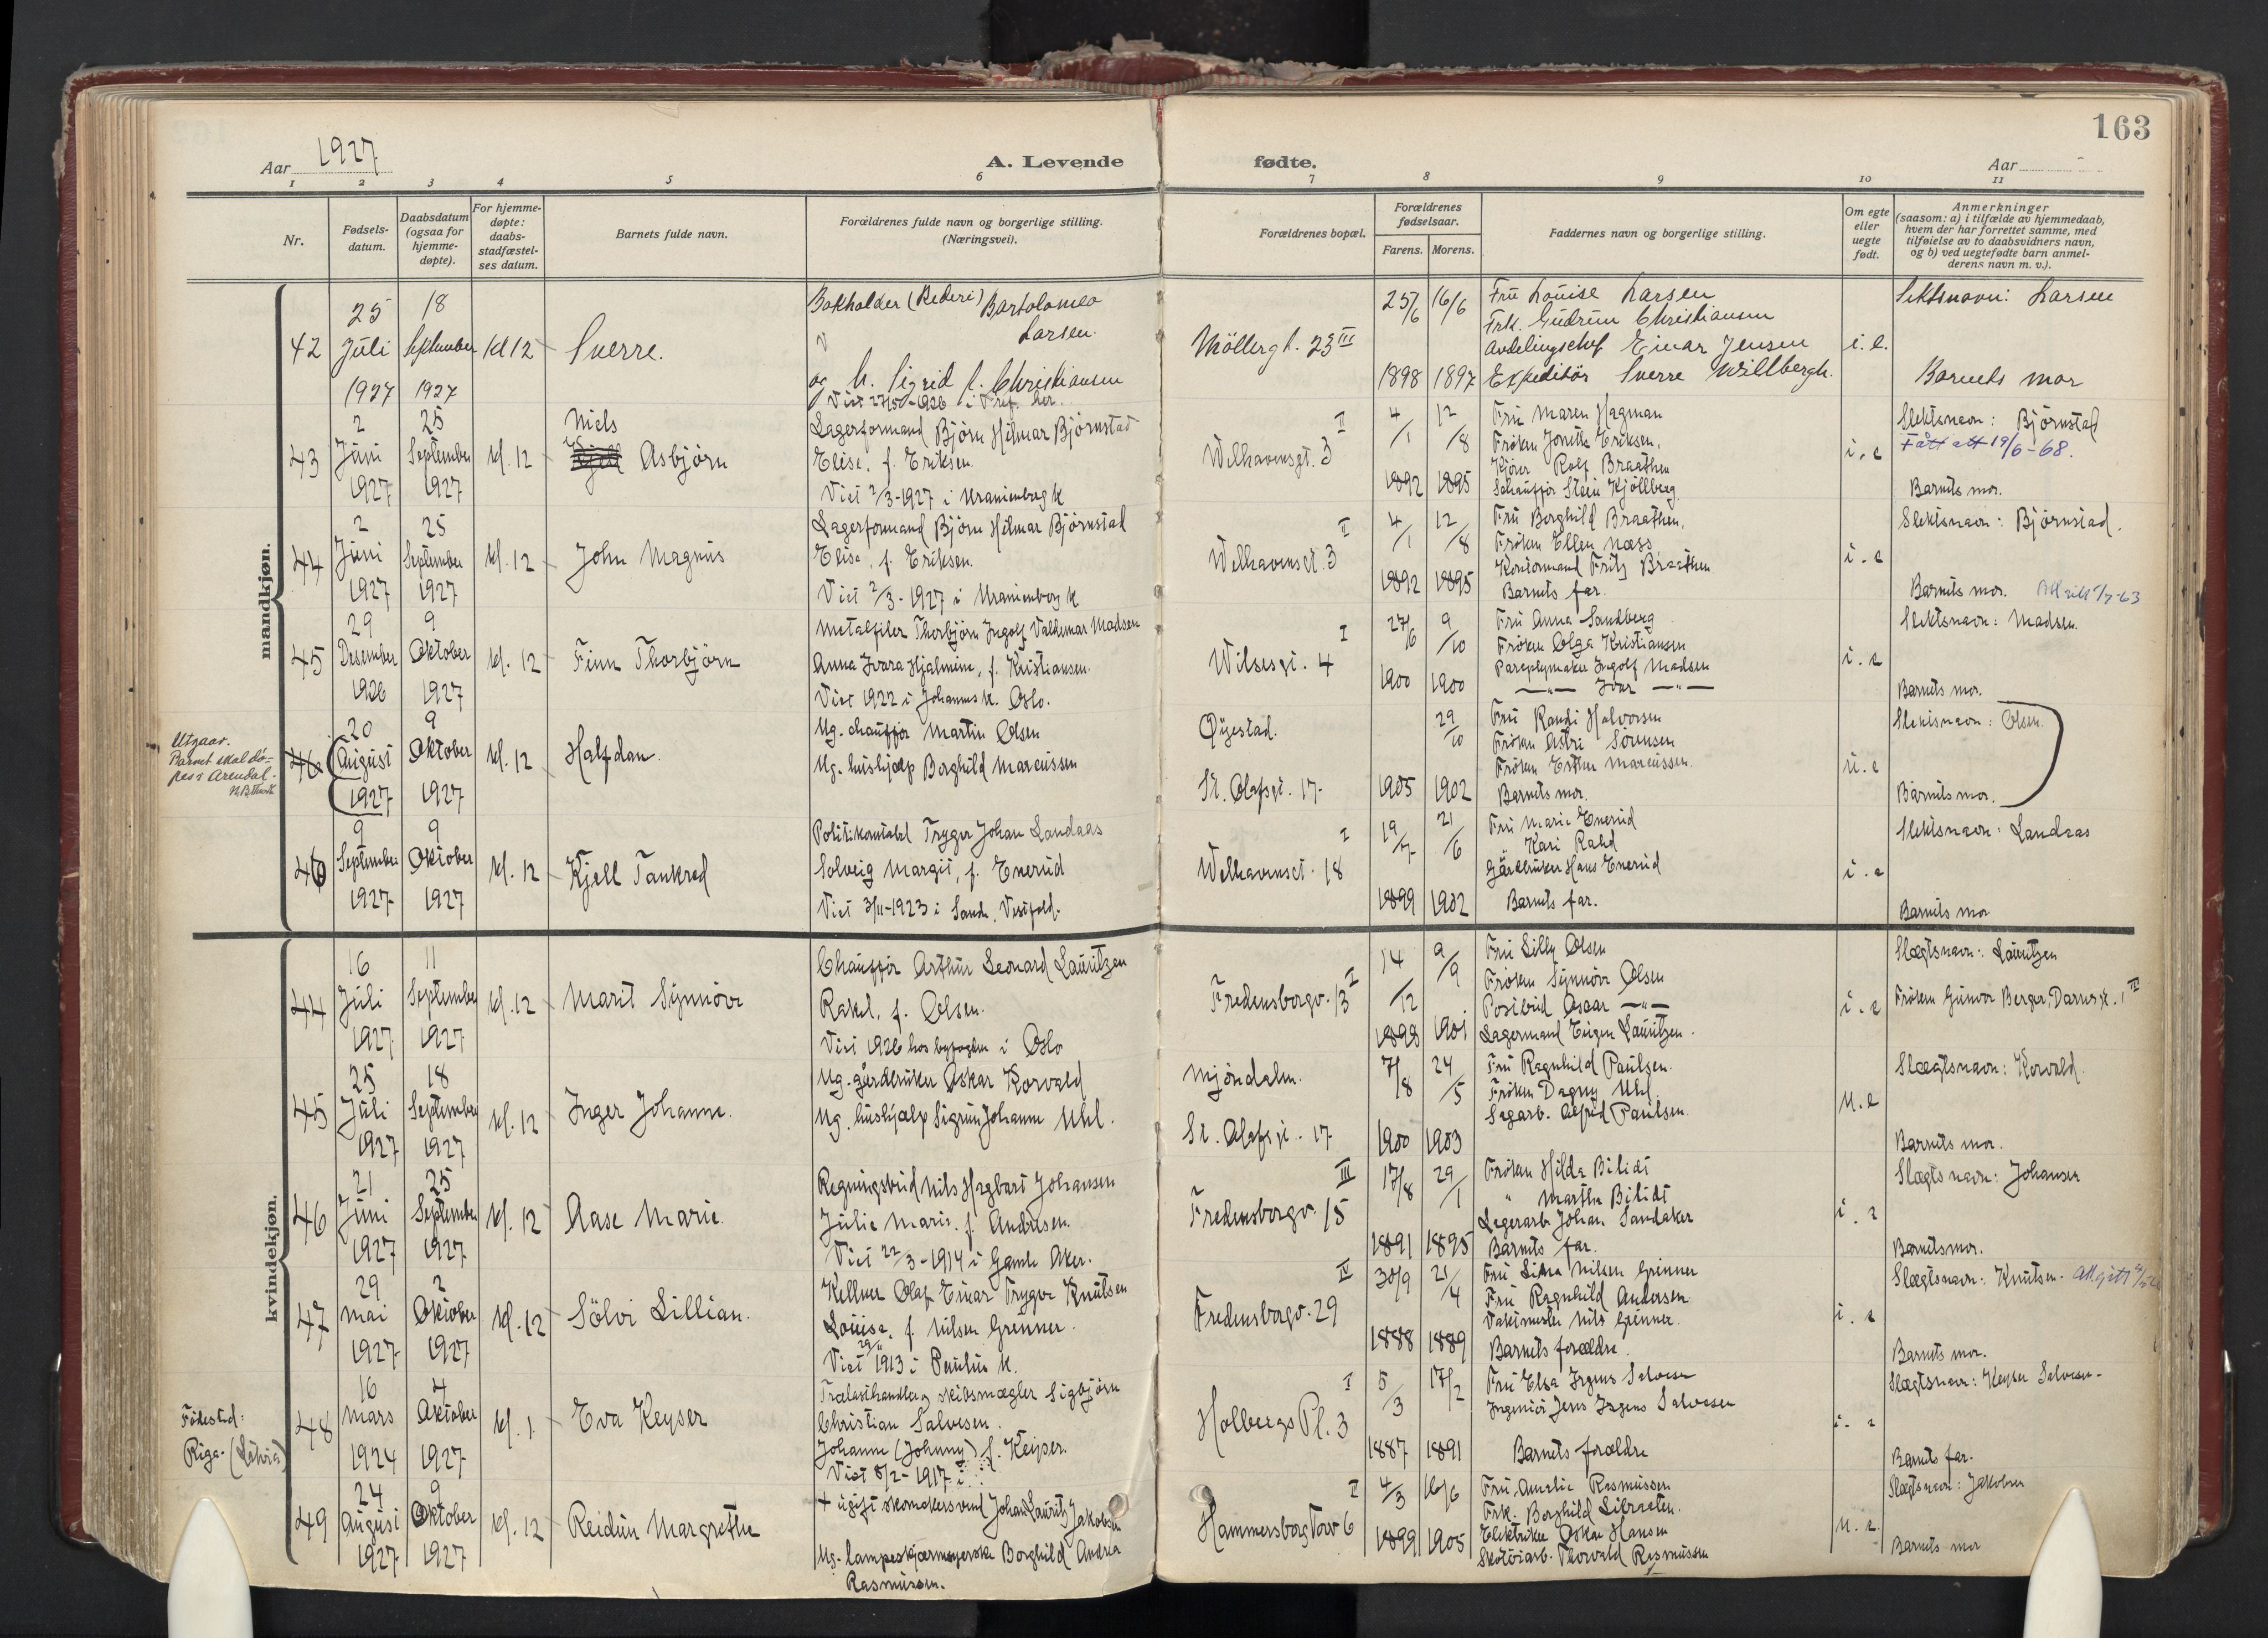 163
Aar 1927
A. Levende fødte.
Aar
1 2 3 4 5 6 7 8 9 10 11
Nr.
Fødsels-
datum.
Daabsdatum
(ogsaa for
hjemme-
døpte).
For hjemme-
døpte:
daabs-
stadfæstel-
ses datum.
Barnets fulde navn.
Forældrenes fulde navn og borgerlige stilling.
(Næringsvei).
Forældrenes bopæl.
Forældrenes
fødselsaar.
Farens. Morens.
Faddernes navn og borgerlige stilling.
Om egte
eller
uegte
født.
Anmerkninger
(saasom: a) i tilfælde av hjemmedaab,
hvem der har forrettet samme, med
tilføielse av to daabsvidners navn,
og b) ved uegtefødte barn anmel-
derens navn m. v.).
mandkjøn.
42
25
Juli
1927
18
September
1927
Kl 12
Sverre.
Bokholder (Rederi) Bartolomeo
Larsen.
og h. Sigrid f. Christiansen
Viet 27/5-1926 i Tref. her.
Møllerg t. 23 III
25/6 16/6
1898 1897
Fru Louise Larsen
Frk. Gudrun Christiansen
Avdelingschef Einar Jensen
Expeditør Sverre Willbergh.
i. e.
Slektsnavn: Larsen
Barnets mor
43
2
Juni
1927
25
September
1927
kl. 12
Niels
Asbjørn
Lagerformand Bjørn Hilmar Bjørnstad
Elise, f. Eriksen.
Viet 2/3-1927 i Uranienborg k
Welhavensgt. 3 II
4/1 12/8
1892 1895
Fru Maren Hagman
Frøken Jonette Eriksen,
Kjører Rolf Braathen
Schauffør Stein Kjøllberg
i. e
Slektsnavn: Bjørnstad
Fått att 19/6-68.
Barnets mor.
44
2
Juni
1927
25
September
1927
kl. 12
John Magnus
Lagerformand Bjørn Hilmar Bjørnstad
Elise, f. Eriksen.
Viet 2/3-1927 i Uranienborg k
Welhavensgt. 3 II
4/1 12/8
1892 1895
Fru Borghild Braathen,
Frøken Ellen Næss
Kontormand Fritz Braathen
Barnets far.
i. e
Slektsnavn: Bjørnstad.
Barnets mor.
45
29
Desember
1926
9
Oktober
1927
kl. 12
Finn Thorbjørn
Metalfiler Thorbjørn Ingolf Valdemar Madsen
Anna Ivara Hjalmine, f. Kristiansen.
Viet 1922 i Johannes k. Oslo.
Wilsesgt. 4 I
27/6 9/10
1900 1900
Fru Anna Sandberg
Frøken Olga Kristiansen
Paraplymaker Ingolf Madsen
—"— Ivar —"—
i. e
Slektsnavn: Madsen.
Barnets mor.
Utgaar.
Barnet skal dø-
pes i Arendal.
46
20
August
1927
9
Oktober
1927
kl. 12
Halfdan.
Ug. chauffør Martin Olsen
Ug. hushjælp Borghild Marcussen
Øyestad.
St. Olafsgt. 17
29/10
1905 1902
Fru Randi Halvorsen
Frøken Astri Sørensen
Frøken Esther Marcussen.
Barnets mor.
u. e
Slektsnavn: Olsen.
Barnets mor.
46
9
September
1927
9
Oktober
1927
kl. 12
Kjell Tankred
Politikonstabel Trygve Johan Landaas
Solveig Margit, f. Enerud
Viet 3/11-1923 i Sande, Vestfold.
Welhavensgt. 18 I
19/7 21/6
1899 1902
Fru Marie Enerud
" Kari Rabd
Gårdbruker Hans Enerud
Barnets far.
i. e
Slektsnavn: Landaas
Barnets mor
kvindekjøn.
44
16
Juli
1927
11
September
1927
kl. 12
Marit Synnøve
Chauffør Arthur Leonard Lauritzen
Rakel, f. Olsen.
Viet 1926 hos byfogden i Oslo
Fredensborgv. 13 I
14/12 9/9
1898 1901
Fru Lilly Olsen
Frøken Synnøve Olsen
Postbud Oscar —"—
Lagermand Eugen Lauritzen.
i. e
Slægtsnavn: Lauritzen
Frøken Gunvor Berger, Darresgt. 1 II
45
25
Juli
1927
18
September
1927
kl. 12
Inger Johanne.
Ug. gårdbruker Oskar Korvald
Ug. hushjælp Sigrun Johanne Uhl.
Mjøndalen.
St. Olafsgt. 17
7/8 24/5
1900 1903
Fru Ragnhild Paulsen.
Frøken Dagny Uhl
Sagarb. Alfred Paulsen.
u. e
Slægtsnavn: Korvald.
Barnets mor.
46
21
Juni
1927
25
September
1927
kl. 12
Aase Marie.
Regningsbud Nils Hagbart Johansen
Julie Marie. f. Andresen.
Viet 22/3-1914 i Gamle Aker.
Fredensborgv. 15 III
17/8 29/1
1891 1895
Frøken Hilda Bilidt
" Marthe Bilidt
Lagerarb. Johan Sandaker
Barnets far.
i. e
Slægtsnavn: Johansen
Barnets mor.
47
29
Mai
1927
2
Oktober
1927
kl. 12
Sölvi Lillian.
Kellner Olaf Einar Trygve Knutsen
Louise, f. Nilsen Grenner.
Viet 29/11 1913 i Paulus k.
Fredensborgv. 29 IV
30/9 21/4
1888 1889
Fru Lina Nilsen Grinner
Fru Ragnhild Andersen
Vaktmester Nils Grinner.
Barnets forældre.
i. e
Slægtsnavn: Knutsen.
Barnets mor.
Fødested:
Riga. (Latvia)
48
16
Mars
1924
4
Oktober
1927
kl. 1
Eva Keyser
Trælasthandler og skibsmægler Sigbjørn
Christian Salvesen.
Johanne (Johnny) f. Keyser.
Viet 8/2-1917 i
Holbergs Pl. 3 I
5/3 17/2
1887 1891
Fru Elsa Irgens Salvesen
Ingeniør Jens Irgens Salvesen
Barnets forældre
i. e
Slægtsnavn: Keyser Salvesen.
Barnets far.
49
24
August
1927
9
Oktober
1927
kl. 12
Reidun Margrethe
+ ugift skomakersvend Johan Lauritz Jakobsen
Ug. lampeskjærmsyerske Borghild Andrea
Rasmussen.
Hammersborg Torv 6 I
4/3 16/6
1899 1905
Fru Amalie Rasmussen
Frk. Borghild Sibraaten.
Elektriker Oskar Hansen
Skotøiarb. Thorvald Rasmussen
u. e.
Slægtsnavn: Jakobsen
Barnets mor